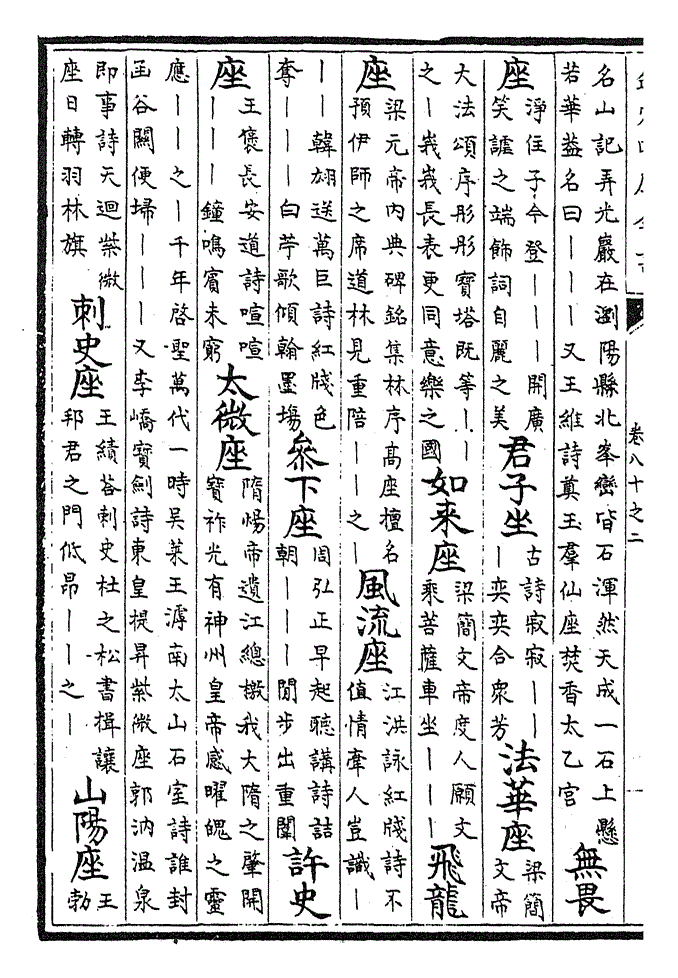 卷八十之二
名山記弄光巖在瀏陽縣北峯巒皆石渾然天成一石上懸
若華葢名曰———又王維詩奠玉羣仙座焚香太乙宮
無畏
座
淨住子今登———開廣
笑謔之端飾詞自麗之美
君子坐
古詩寂寂——
—奕奕合衆芳
法華座
梁簡
文帝
大法頌序彤彤寶塔既等——
之—峩峩長表更同意樂之國
如来座
梁簡文帝度人願文
乘菩薩車坐———
飛龍
座
梁元帝内典碑銘集林序髙座擅名
預伊師之席道林見重陪——之—
風流座
江洪詠紅牋詩不
值情牽人豈識—
——韓翃送萬巨詩紅牋色
奪———白苧歌傾翰墨塲
叅下座
周弘正早起聽講詩詰
朝———閒步出重闈
許史
座
王襃長安道詩喧喧
———鐘鳴賓未窮
太微座
隋煬帝遺江總檄我大隋之肇開
寳祚光有神州皇帝感曜魄之靈
應——之—千年啓聖萬代一時吳萊王滹南太山石室詩誰封
函谷關便埽———又李嶠寳劍詩東皇提昇紫微座郭汭温泉
即事詩天迴紫微
座日轉羽林旗
刺史座
王績荅刺史杜之松書揖讓
邦君之門低昻———之—
山陽座
王
勃